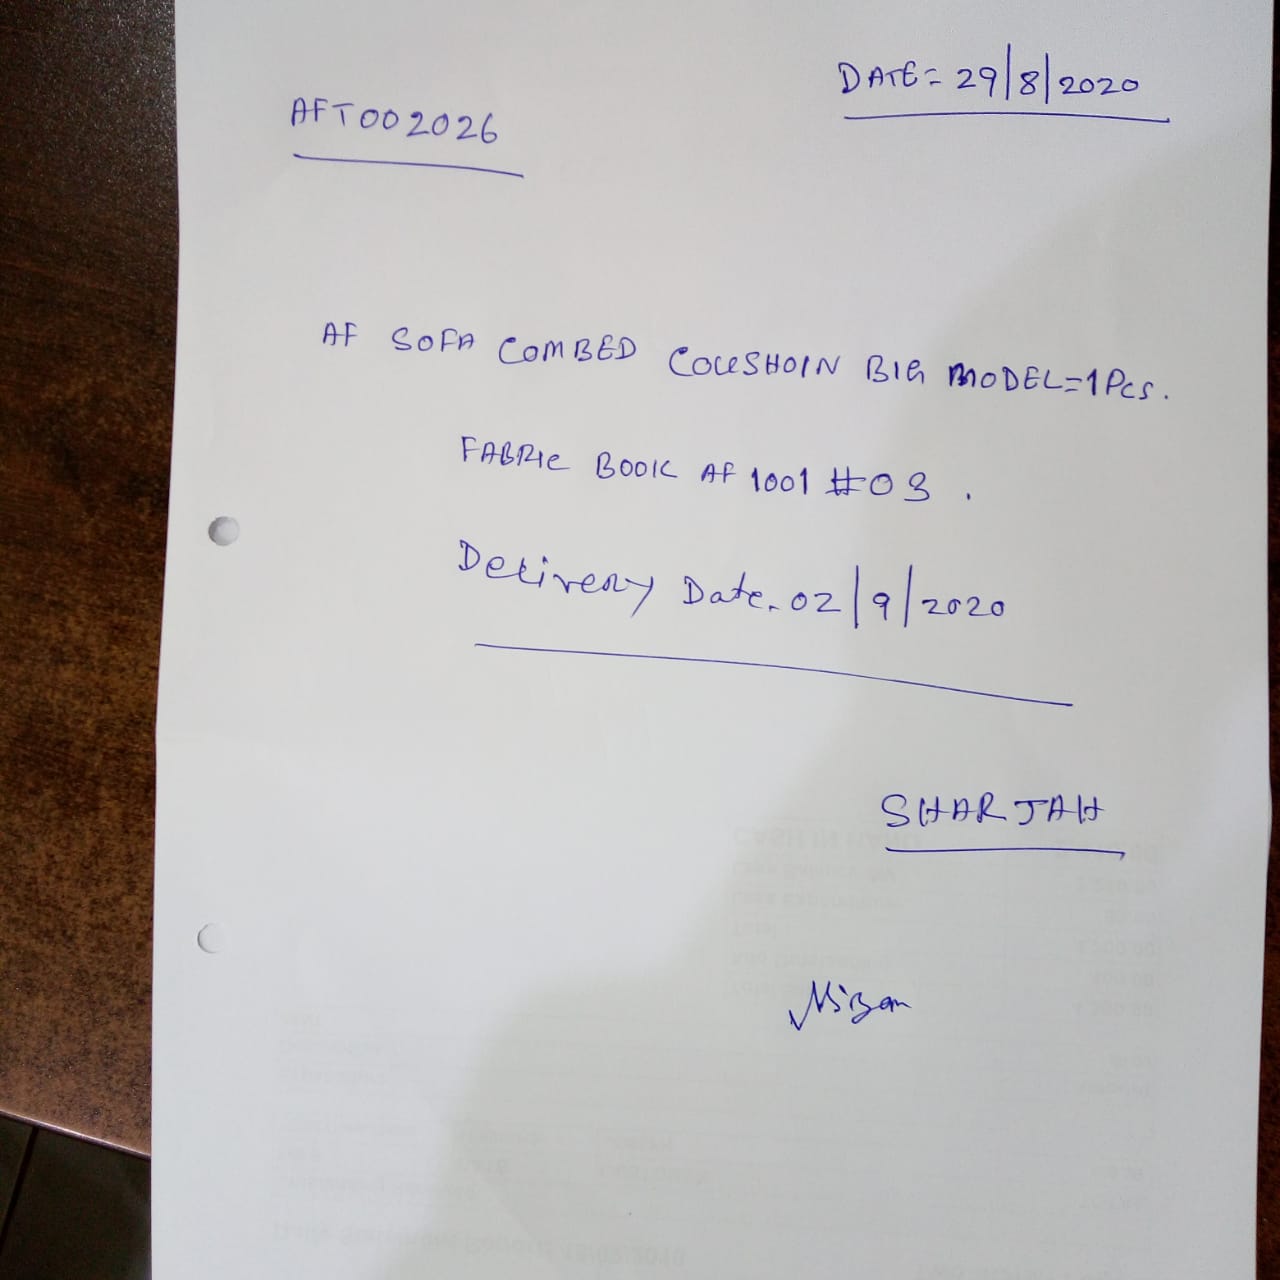 DATE= 29/8/2020
AFT002026
AF SOFA COMBED COUSHOIN BIG MODEL=1Pcs.
FABRIC BOOK AF 1001 #03.
Delivery Date. 02/9/2020
SHARJAH
Nizam